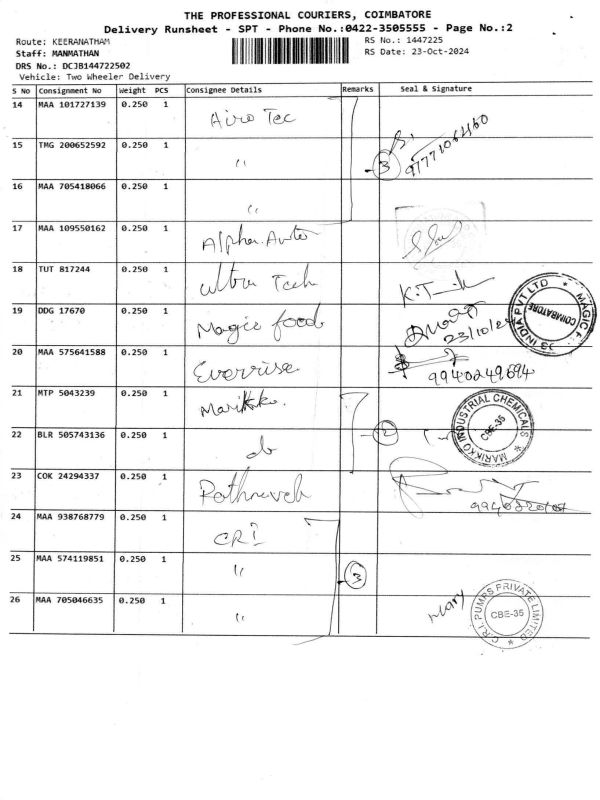 THE PROFESSIONAL COURIERS, COIMBATORE
Delivery Runsheet - SPT - Phone No.:0422-3505555 - Page No.:2
Route: KEERANATHAM
RS No.: 1447225
Staff: MANMATHAN
RS Date: 23-Oct-2024
DRS No.: DCJB144722502
Vehicle: Two Wheeler Delivery
S No Consignment No Weight PCS Consignee Details Remarks Seal & Signature
14 MAA 101727139 0.250 1 Airo Tec
15 TMG 200652592 0.250 1 " 3
16 MAA 705418066 0.250 1 "
17 MAA 109550162 0.250 1 Alpha Auto
18 TUT 817244 0.250 1 Ultra Tech
19 DDG 17670 0.250 1 Magic food 23/10/24
MAGIC INDIA PVT LTD COIMBATORE
20 MAA 575641588 0.250 1 Everrise 9940249694
21 MTP 5043239 0.250 1 Marikko.
22 BLR 505743136 0.250 1 do 2
MARIKKO INDUSTRIAL CHEMICALS CBE-35
23 COK 24294337 0.250 1
24 MAA 938768779 0.250 1 CRI
25 MAA 574119851 0.250 1 " 3
26 MAA 705046635 0.250 1 " Mary
C.R.I. PUMPS PRIVATE LIMITED CBE-35